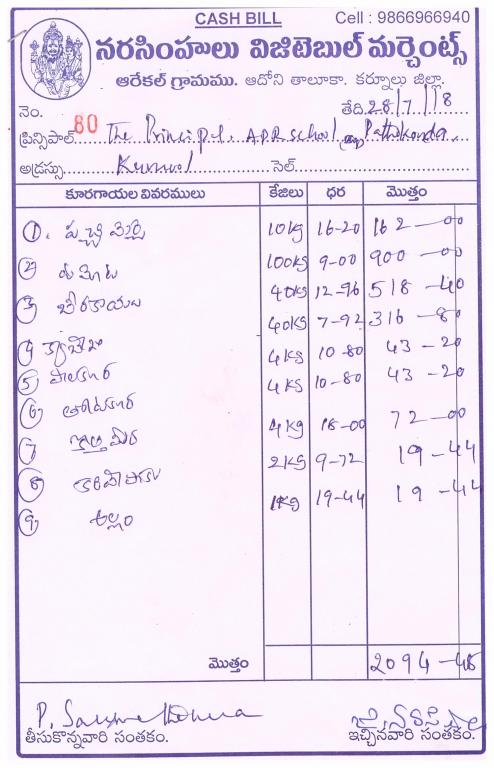 CASH BILL Cell : 9866966940
నరసింహలు విజిటెబుల్ మర్చెంట్స్
ఆరేకల్ గ్రామము. ఆదోని తాలూకా. కర్నూలు జిల్లా.
నెం. 80 తేది. 28/7/18
ప్రిన్సిపాల్ The Principal, A.P.R School, Pathikonda
అడ్రస్సు Kurnool సెల్
కూరగాయల వివరములు కేజీలు ధర మొత్తం
1. పచ్చి మిర్చి 10kg 16-20 162-00
2 టమోట 100kg 9-00 900-00
3 బీరకాయలు 40kg 12-96 518-40
4 క్యాబేజి 40kg 7-92 316-80
5 పాలకూర 4kg 10-80 43-20
6 తోటకూర 4kg 10-80 43-20
7 కొత్తిమీర 4kg 18-00 72-00
8 కరివేపాకు 2kg 9-72 19-44
9 అల్లం 1kg 19-44 19-44
మొత్తం 2094-48
తీసుకొన్నవారి సంతకం. ఇచ్చినవారి సంతకం.